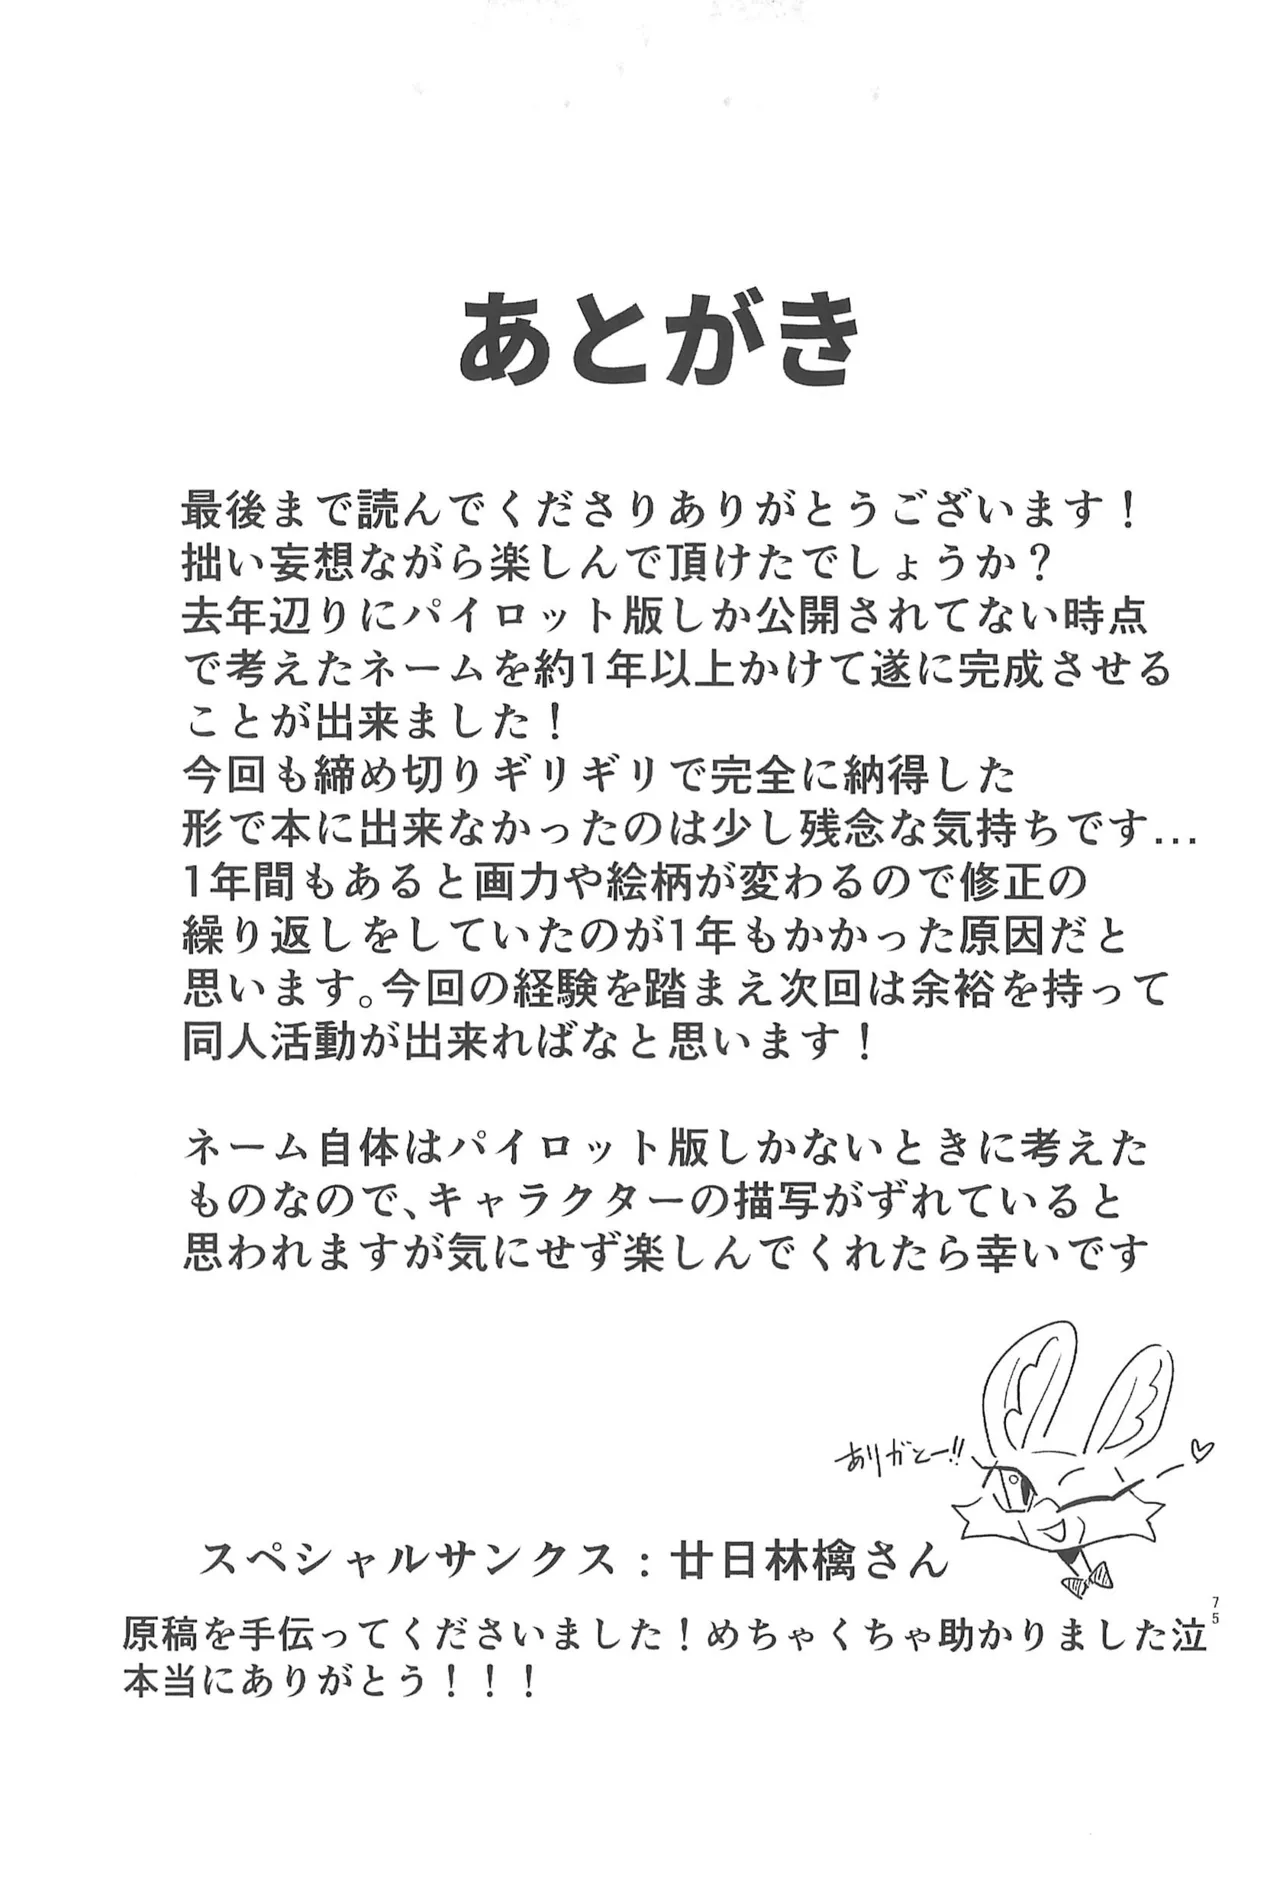 あとがき
最後まで読んでくださりありがとうございます！
拙い妄想ながら楽しんで頂けたでしょうか？
去年辺りにパイロット版しか公開されてない時点
で考えたネームを約1年以上かけて遂に完成させる
ことが出来ました！
今回も締め切りギリギリで完全に納得した
形で本に出来なかったのは少し残念な気持ちです…
1年間もあると画力や絵柄が変わるので修正の
繰り返しをしていたのが1年もかかった原因だと
思います。今回の経験を踏まえ次回は余裕を持って
同人活動が出来ればなと思います！
ネーム自体はパイロット版しかないときに考えた
ものなので、キャラクターの描写がずれていると
思われますが気にせず楽しんでくれたら幸いです
ありがとー!!♡
スペシャルサンクス：廿日林檎さん
75
原稿を手伝ってくださいました！めちゃくちゃ助かりました泣
本当にありがとう！！！